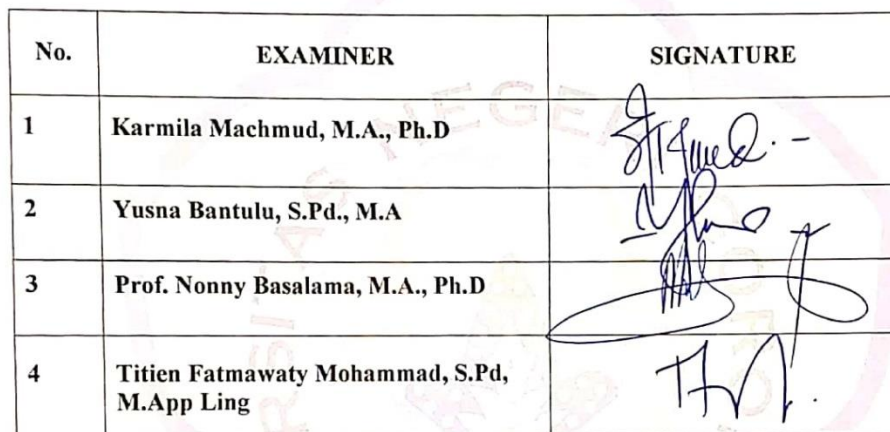 No. EXAMINER SIGNATURE
1 Karmila Machmud, M.A., Ph.D
2 Yusna Bantulu, S.Pd., M.A
3 Prof. Nonny Basalama, M.A., Ph.D
4 Titien Fatmawaty Mohammad, S.Pd,
M.App Ling